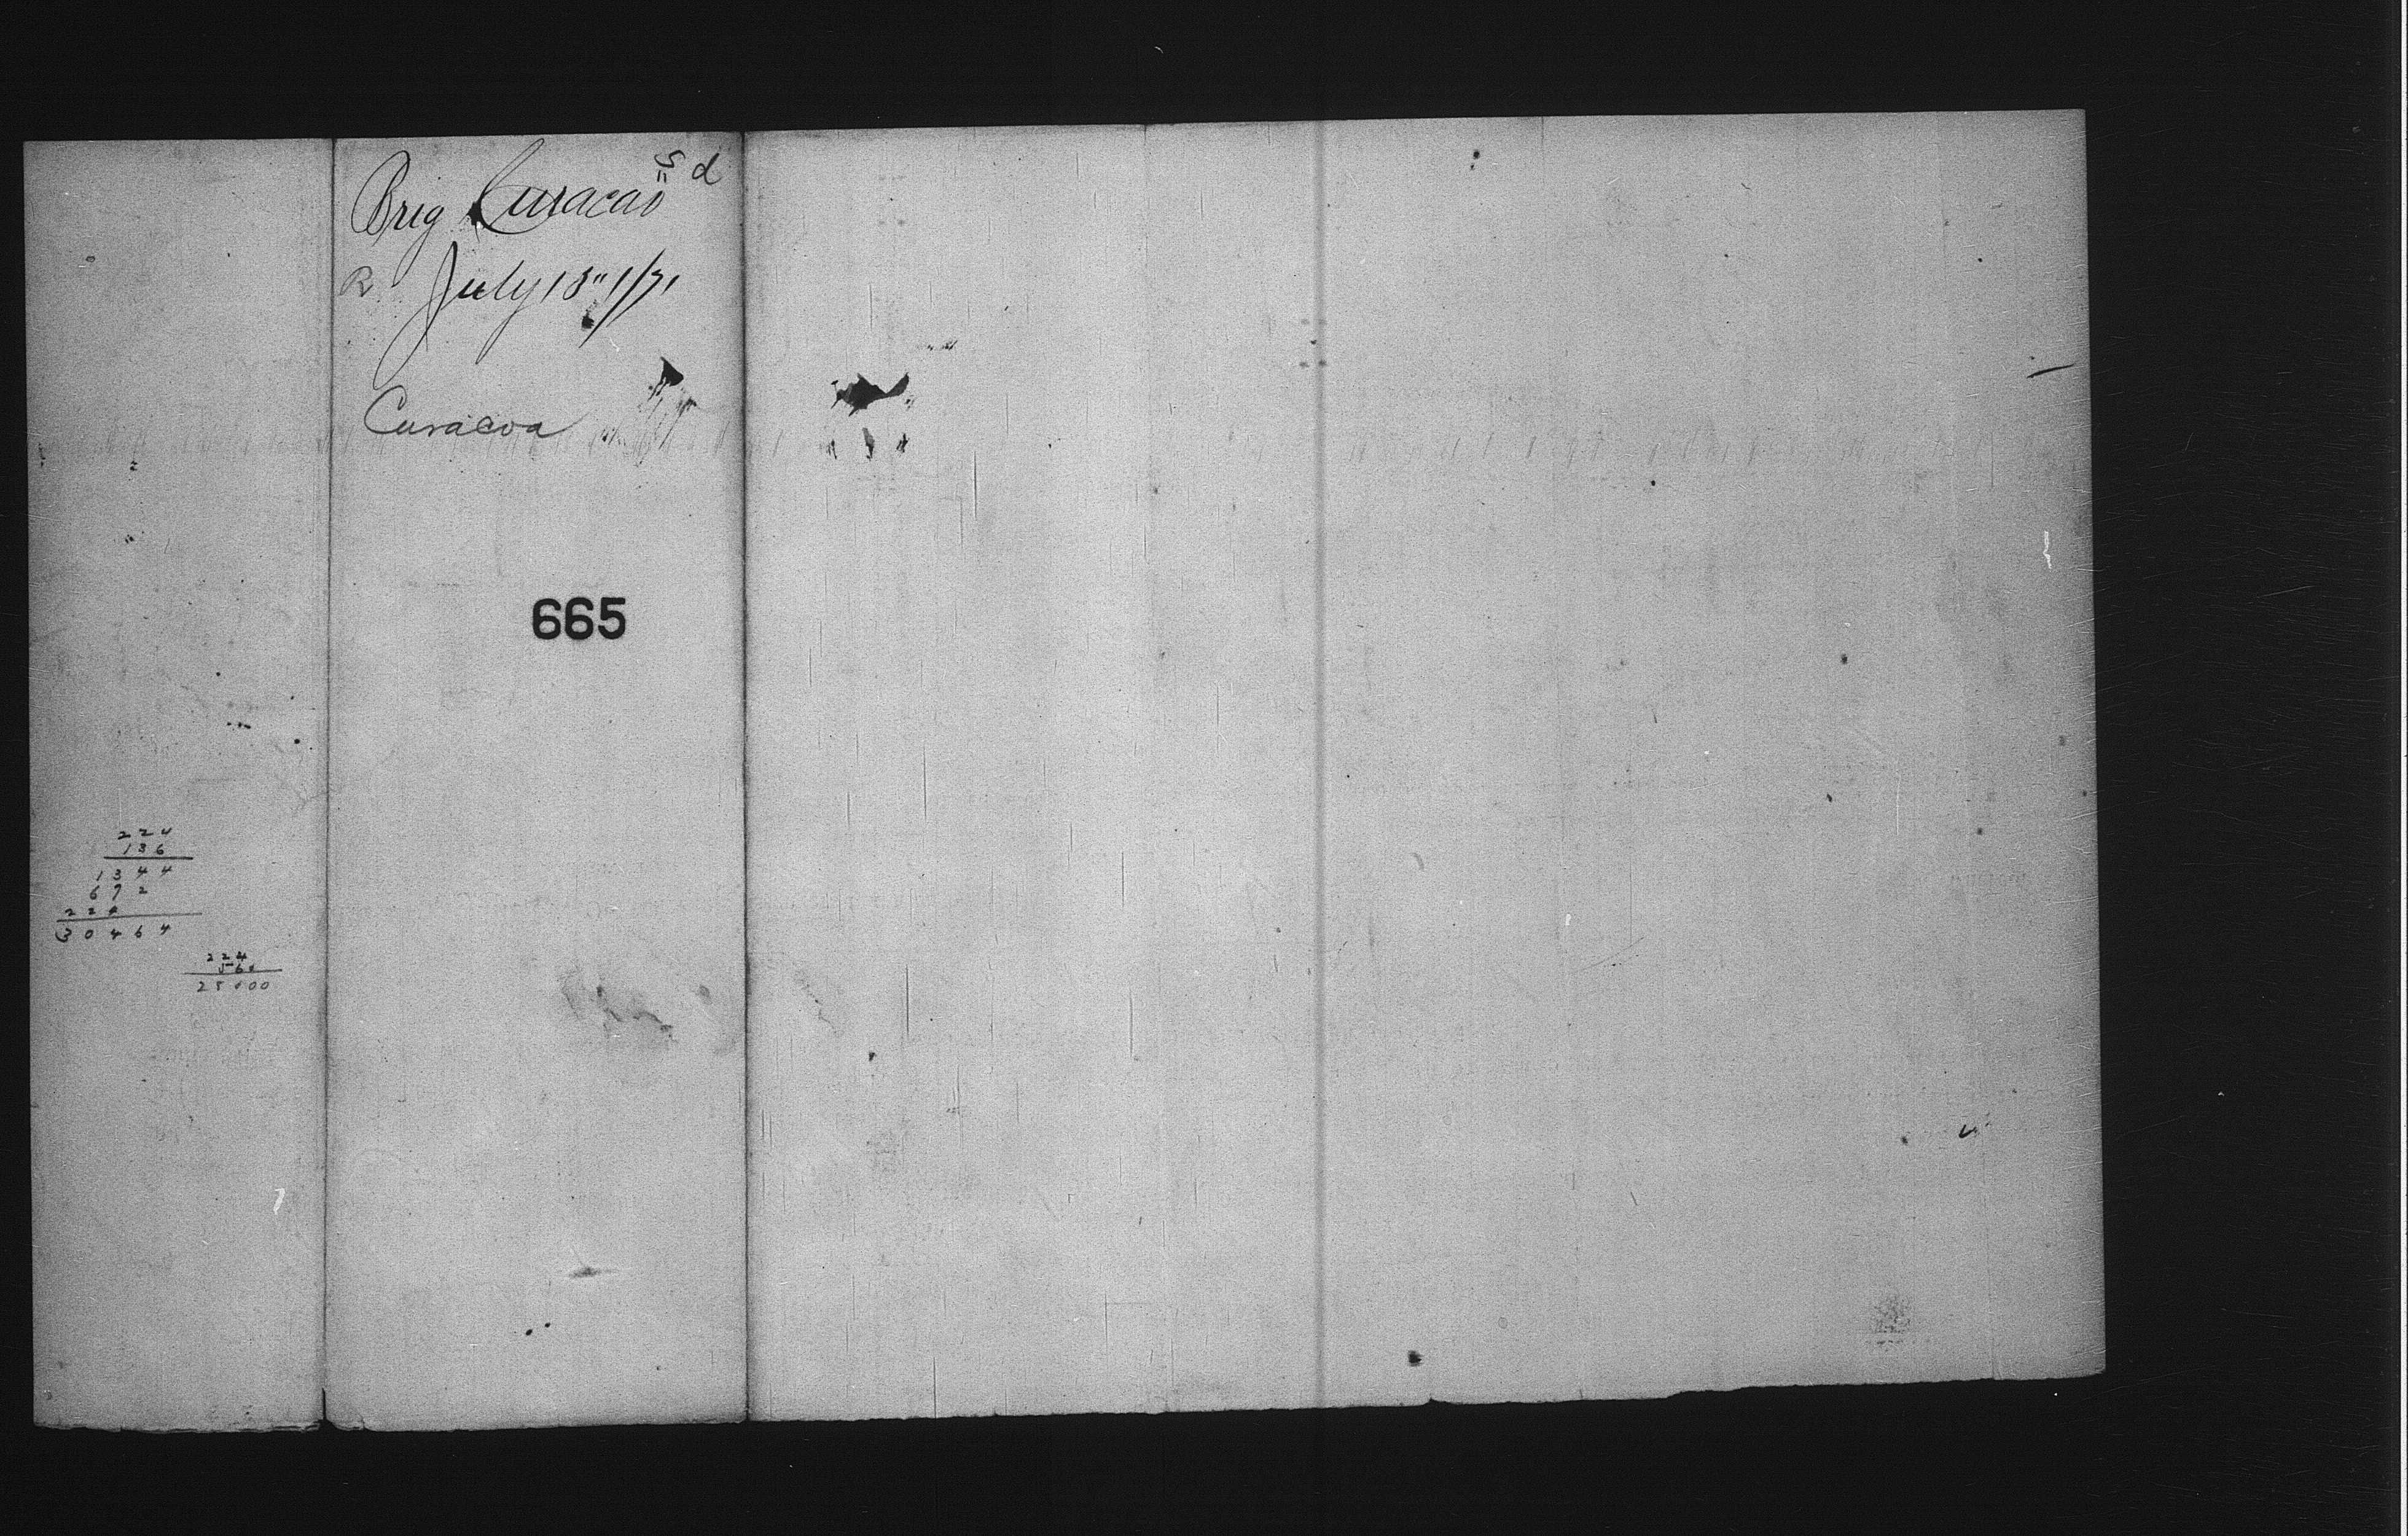 S d
Brig Curacao
R July 13" 1/71
Curacoa
665
224
136
1344
672
224
30464
224
560
25000